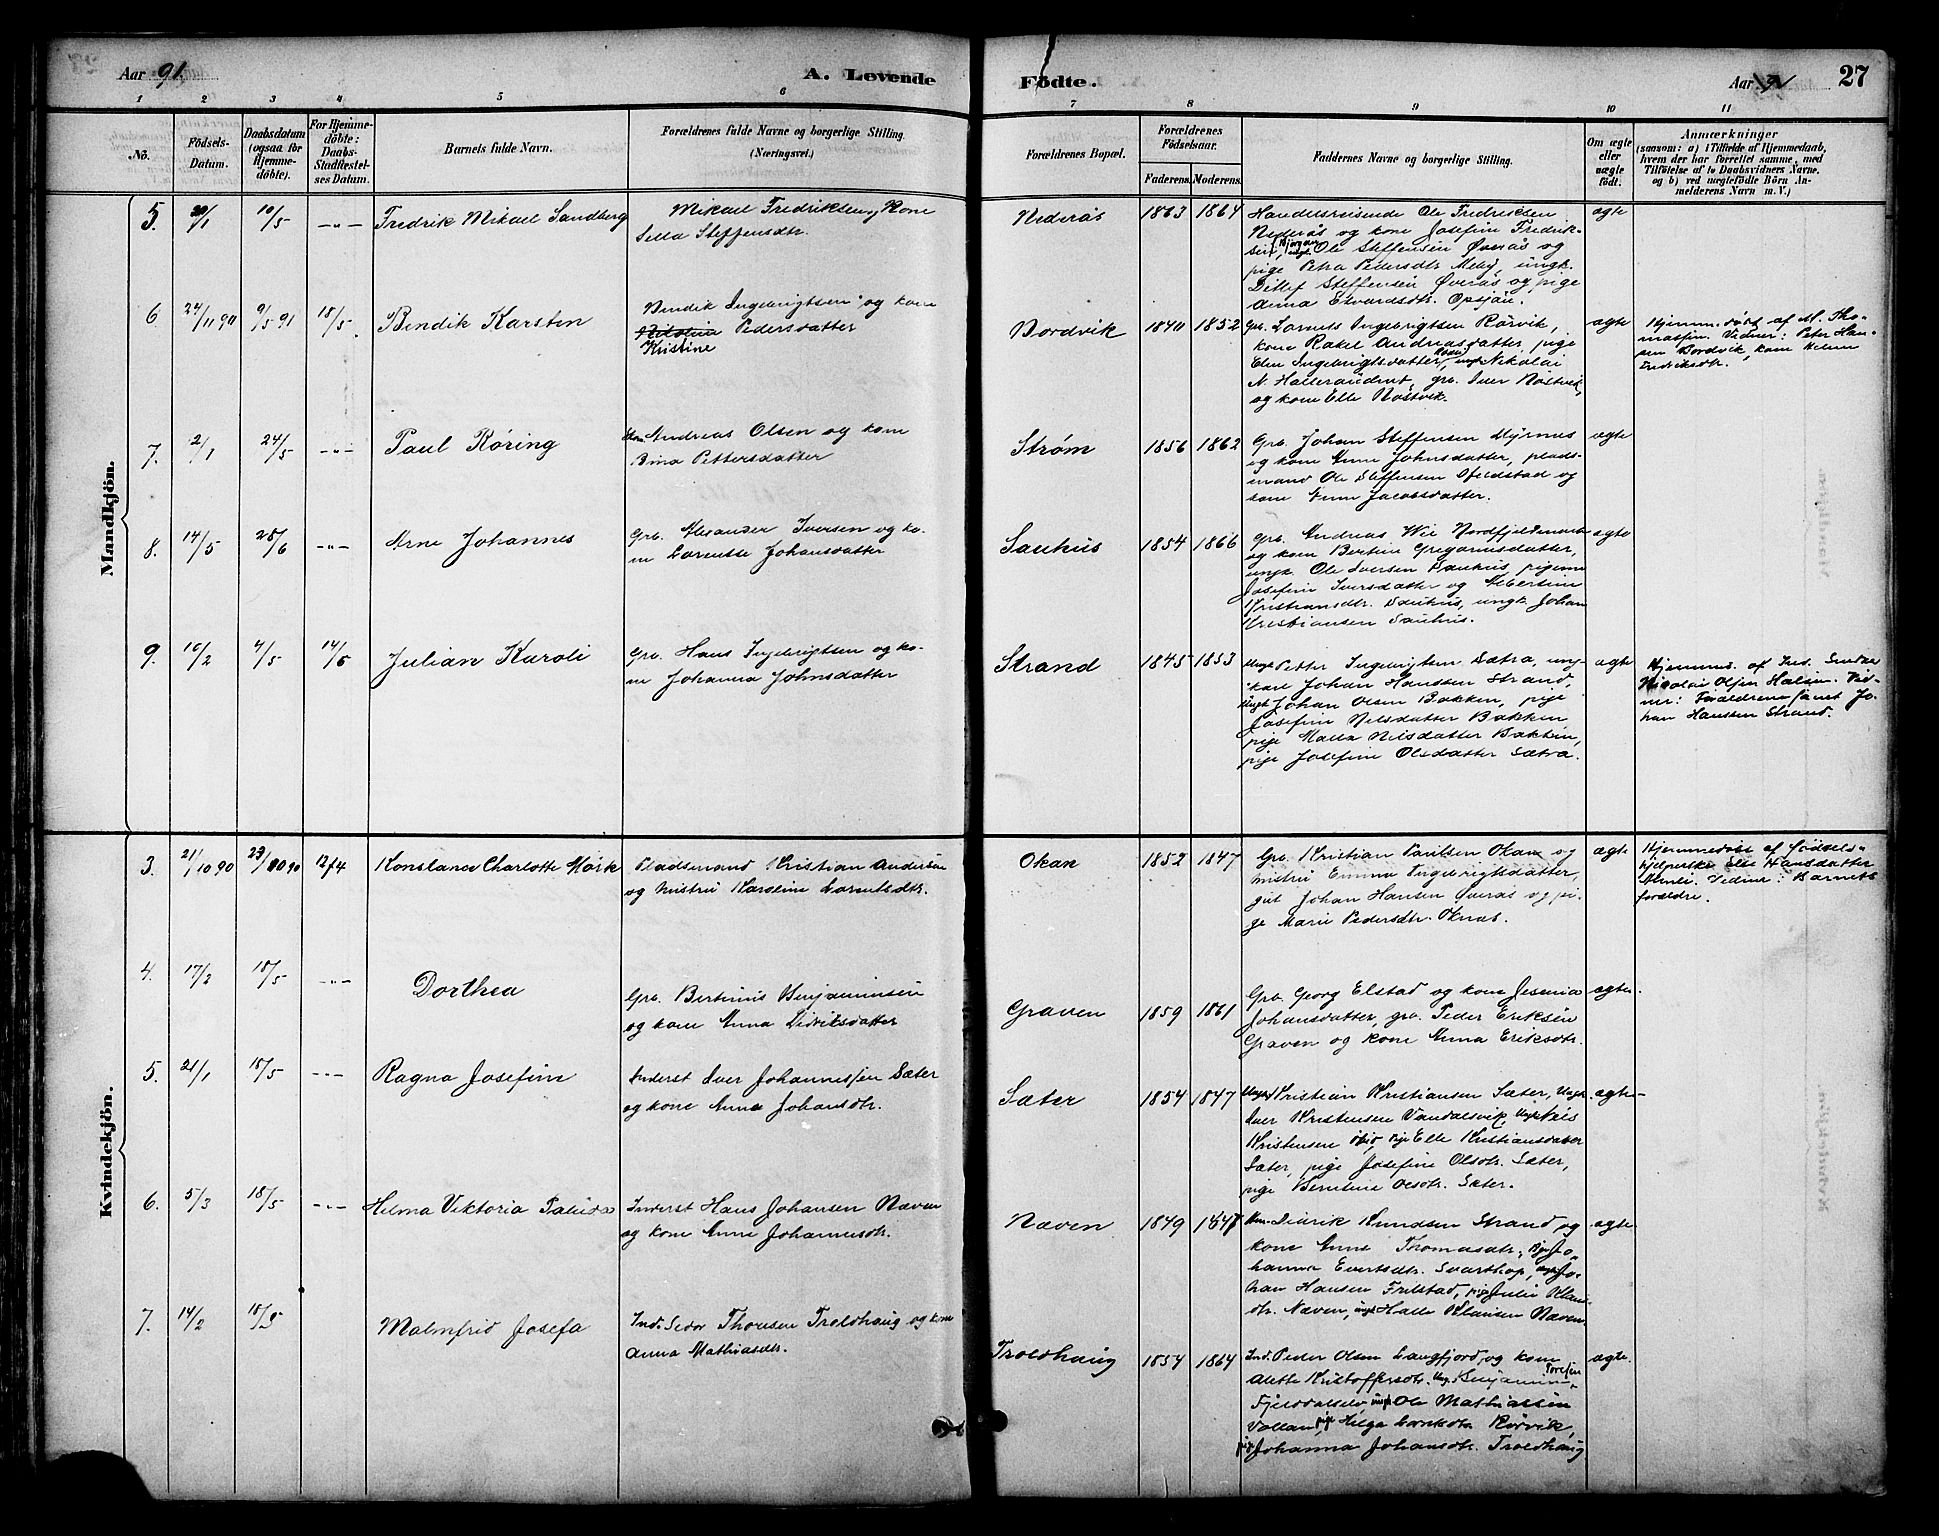 Aar 91.
A. Levende
Födte.
Aar
27
1 2 3 4 5 6 7 8 9 10 11
No.
Födsels-
Datum.
Daabsdatum
(ogsaa for
Hjemme-
döbte).
For Hjemme-
döbte:
Daabs-
Stadfæstel-
ses Datum.
Barnets fulde Navn.
Forældrenes fulde Navne og borgerlige Stilling.
(Næringsvei.)
Forældrenes Bopæl.
Forældrenes
Födselsaar.
Faderens. Moderens.
Faddernes Navne og borgerlige Stilling.
Om ægte
eller
uægte
födt.
Anmærkninger
(saasom: a) i Tilfælde af Hjemmedaab,
hvem der har forrettet samme, med
Tilföielse af to Daabsvidners Navne,
og b) ved uægtefödte Börn An-
melderens Navn m. V.)
Mandkjön.
5. 10/5 -"- Fredrik Mikael Sandberg
Mikael Fredriksen, Kone
Sella Steffensdtr.
Nederås 1863 1864
Handelsreisende Ole Fredriksen
Nederås og kone Josefine Fredrik-
sen, Ole Steffensen Øverås og
pige Petra Pedersdtr. Meby, ungk.
Ditlef Steffensen Øverås og pige
Anna Edvardsdtr. Opsjøn.
ægte
6. 24/11 90 9/5 91 18/5 Bendik Karsten
Bendik Ingebrigtsen og kone
Pedersdatter
Kristine
Nordvik 1840 1852
Grb. Lornts Ingebrigtsen Rörvik,
kone Rakel Andreasdatter, pige
Elen Ingebrigtsdatter, ungk. Nikolai
N. Halseraudent, grb. Iver Nöstvik
og kone Elle Nöstvik.
ægte
Hjemmedöbt af M. Tho-
massen. Vidner: Peter Han-
sen Bordvik, kone
Fredriksdtr.
7. 2/1 24/5 -"- Paul Röring
Andreas Olsen og kone
Bina Pettersdatter
Ström 1856 1862
Grb. Johan Steffensen Myrnes
og kone Anne Johnsdatter, plads-
mand Ole Steffensen Fjeldstad og
kone Jacobsdatter.
ægte
8. 14/5 28/6 -"- Arne Johannes
Grb. Alexander Iversen og ko-
ne Lorentse Johansdatter
Sauhus 1854 1866
Grb. Andreas Wie Nordfjeldmark
og kone Bertine Gregoriusdatter,
ungk. Ole Iversen Sauhus, pigerne
Josefine Iversdatter og Albertine
Kristiansdtr. Sauhus, ungk. Johan
Kristiansen Sauhus.
ægte
9. 15/2 4/5 14/6 Julian Karoli
Grb. Hans Ingebrigtsen og ko-
ne Johanna Johnsdatter
Strand 1845 1853
Ungk. Petter Ingebrigtsen Sætra, ung-
karl Johan Hanssen Strand,
Ungk. Johan Olsen Bakken, pige
Josefine Nilsdatter Bakken,
pige Malla Nilsdatter Bakken,
pige Josefine Olsdatter Sætra.
ægte
Hjemmed. af Ind. Snedker
Nicolai Olsen Halsen. Vid-
ner: Forældrene samt Jo-
han Hanssen Strand.
Kvindekjön.
3. 21/10 90 12/4 Konstance Charlotte Mörk
Pladsmand Kristian Andersen
og hustru Karoline Larntsdtr.
Okan 1852 1847
Grb. Kristian Paulsen Okan og
hustru Emma Ingebrigtsdatter,
gut Johan Hansen Øverås og pi-
ge Marie Pedersdtr. Oknas.
ægte
Hjemmedöbt af Födsels-
hjelperske Else Hansdatter
Vidner: Barnets
forældre.
4. 17/2 18/5 -"- Dorthea
Grb. Bertinus Benjaminsen
og kone Anna Didriksdatter
Graven 1859 1861
Grb. Georg Elstad og kone Jesenia
Johansdatter, grb. Peder Eriksen
Graven og kone Anna Eriksdtr.
ægte.
5. 21/1 18/5 -"- Ragna Josefine
Inderst Iver Johannessen Sæter
og kone Anna Johansdtr.
Sæter 1854 1847
Ungk. Kristian Kristiansen Sæter, Ungk.
Iver Kristensen Vandalsvik, Ungk. Nils
Kristensen pige Elle Kristiansdatter
Sæter, pige Josefine Olsdtr. Sæter,
pige Berntine Olsdtr. Sæter.
ægte
6. 5/3 18/5 -"- Helma Viktoria Palida
Inderst Hans Johansen Næven
og kone Anne Johannesdtr.
Næven 1849 1847
Didrik Knudsen Strand og
kone Anne Thomasdtr., Pige Jo-
hanna Evertsdtr. Svarthop, ungk. Jo-
han Hansen Frilstad, pige Julie Klaus-
dtr. Næven, ungk. Halle Klausen Næven.
ægte
7. 14/2 18/5 Malmfrid Josefa
Ind. Sedor Thoresen Troldhaug og kone
Anna Mathiasdtr.
Troldhaug 1854 1864
Ind. Peder Olsen Langfjord og kone
Alette Kristoffersdtr. Ungk. Benjamin Toresen
Fjeldalselv, ungk. Ole Mathiassen
Vollan, pige Helga Larntsdtr. Rörvik,
pige Johanna Johansdtr. Troldhaug.
ægte.